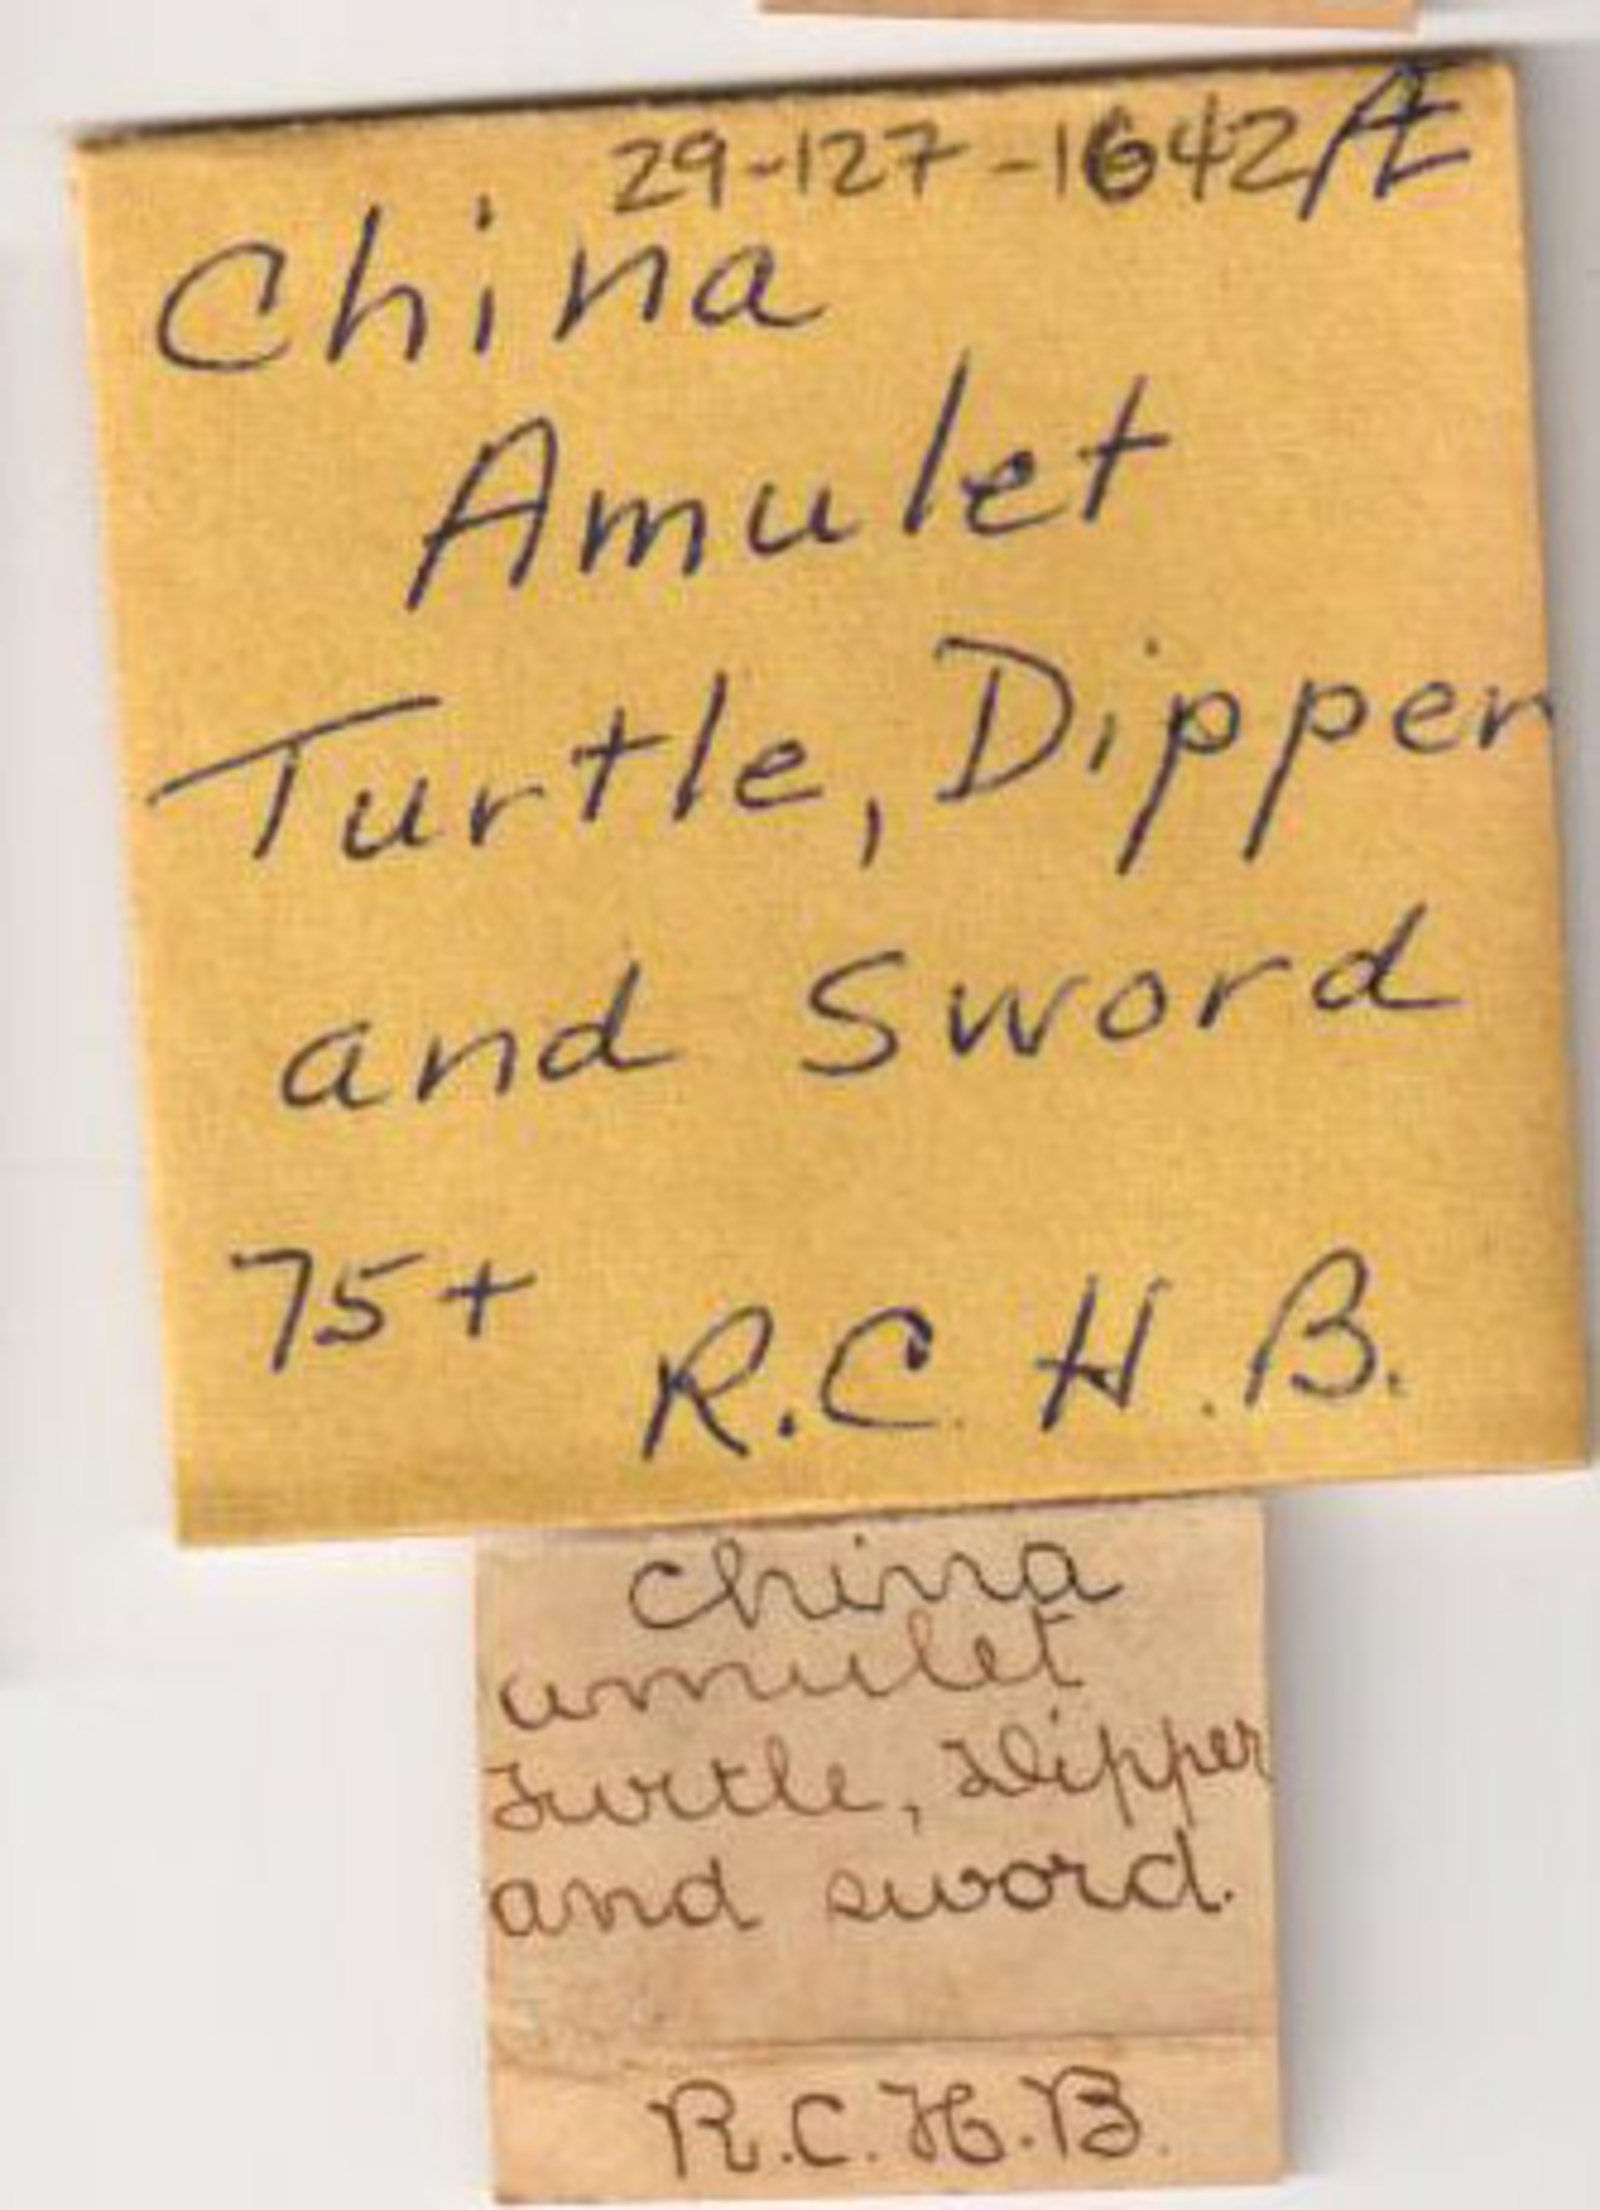 29-127-1642 Æ
China
Amulet
Turtle, Dipper
and Sword
75+
R.C.H.B.
China
amulet
Turtle, Dipper
and sword.
R.C.H.B.